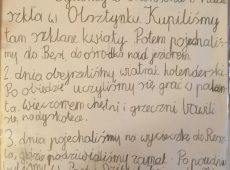 szkła w Olsztynku. Kupiliśmy
tam szklane kwiaty. Potem pojechaliś-
my do Besi, do ośrodka nad jeziorem.
2. dnia obejrzeliśmy wiatrak holenderski.
Po obiedzie uczyliśmy się grać w
wieczorem chętni i grzeczni
się na dyskotece.
3. dnia pojechaliśmy na wycieczkę do Resz-
la, gdzie podziwialiśmy zamek. Po południu